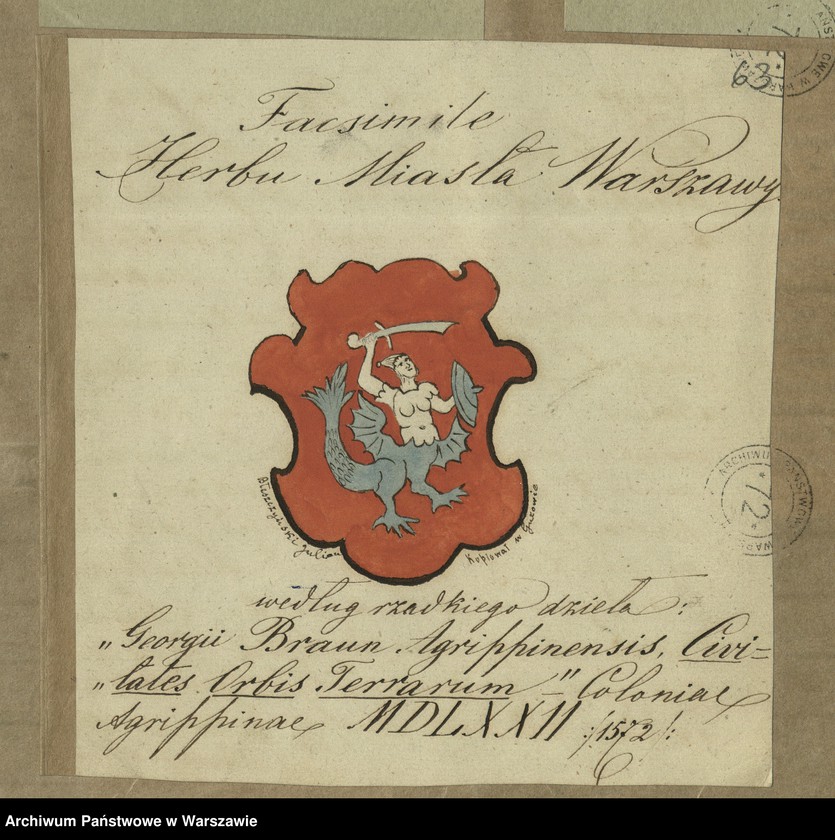 63.
Facsimile
Herbu Miasta Warszawy
Błeszczyński Julian
Kopiował w Gukowie
według rzadkiego dzieła :
„Georgii Braun Agrippinensis, Civi=
„tates Orbis Terrarum =" Coloniae
Agrippinae MDLXXII :/1572/:
ARCHIWUM PAŃSTWOWE
* 72 *
Archiwum Państwowe w Warszawie